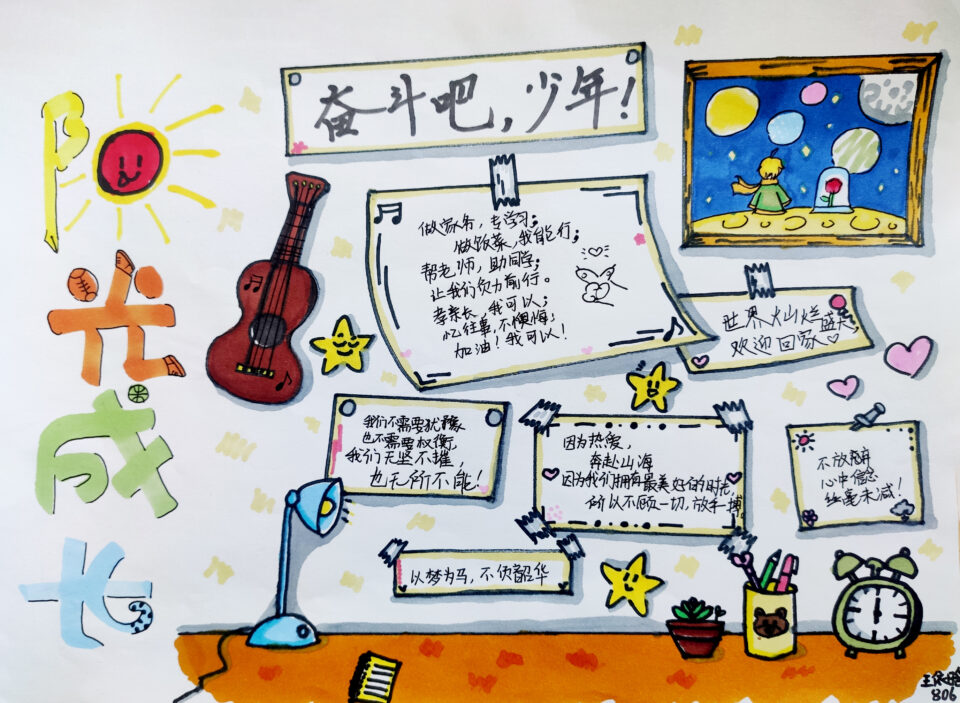 阳光成长
奋斗吧,少年!
做家务,专学习;
做饭菜,我能行;
帮老师,助同学;
让我们负力前行。
孝亲长,我可以;
忆往事,不懊悔;
加油!我可以!
世界灿烂盛大,
欢迎回家
我们不需要犹豫
也不需要权衡,
我们无坚不摧,
也无所不能!
因为热爱,
奔赴山海
因为我们拥有最美好的时光,
所以不顾一切,放手一搏
不放弃
心中信念
丝毫未减!
以梦为马,不负韶华
806